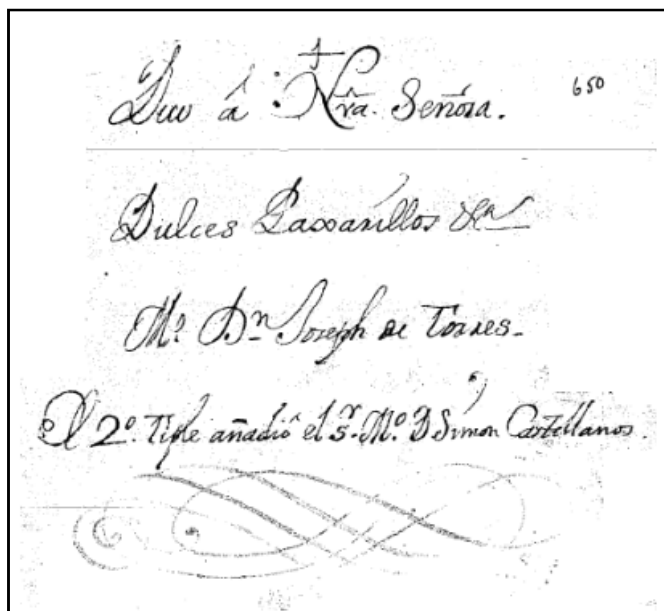 Duo â Nrâ. Señora. 650
Dulces Paxarillos &a
Mº. Dn. Joseph de Torres.
El 2º. Tiple añadiô el Sr. Mº. D Simon Castellanos.